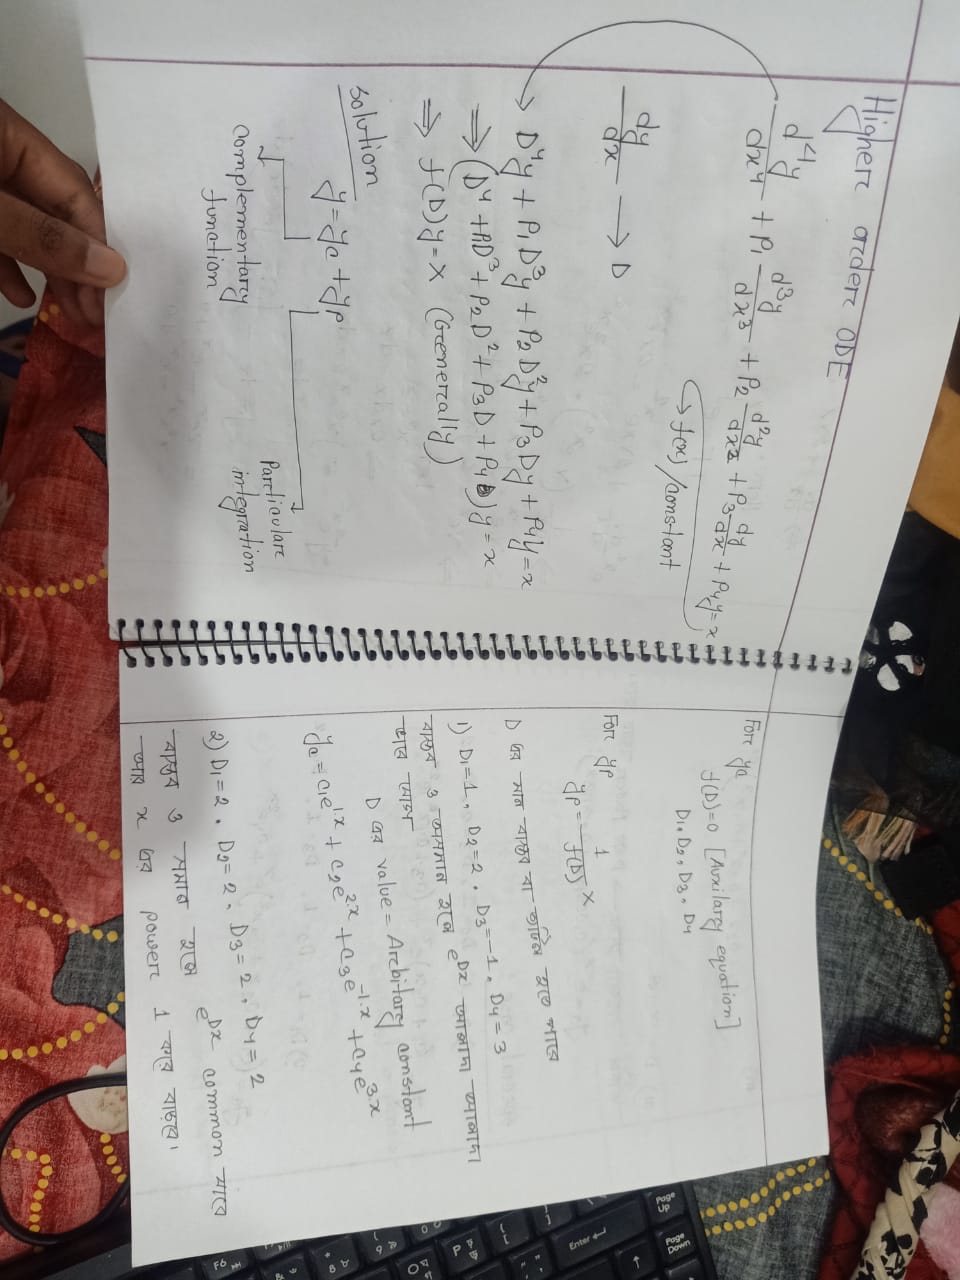 Higher order ODE
d⁴y/dx⁴ + P₁ d³y/dx³ + P₂ d²y/dx² + P₃ dy/dx + P₄y = x
→ f(x) / constant
dy/dx → D
D⁴y + P₁D³y + P₂D²y + P₃Dy + P₄y = x
⇒ (D⁴ + P₁D³ + P₂D² + P₃D + P₄) y = x
⇒ f(D)y = X (Generally)
Solution
y = yc + yp
Complementary function
Particular integration
For yc
f(D)=0 [Auxilary equation]
D₁, D₂, D₃, D₄
For yp
yp = 1/f(D) X
D এর মান বাস্তব বা জটিল হতে পারে
১) D₁=1, D₂=2, D₃=-1, D₄=3
বাস্তব ও অসমান হলে e^Dx আলাদা আলাদা
ভাবে
D এর value = Arbitary constant
yc = c₁e^1.x + c₂e^2.x + c₃e^-1.x + c₄e^3.x
২) D₁=2, D₂=2, D₃=2, D₄=2
বাস্তব ও সমান হলে e^Dx common যাবে
আর x এর power 1 করে বাড়বে।